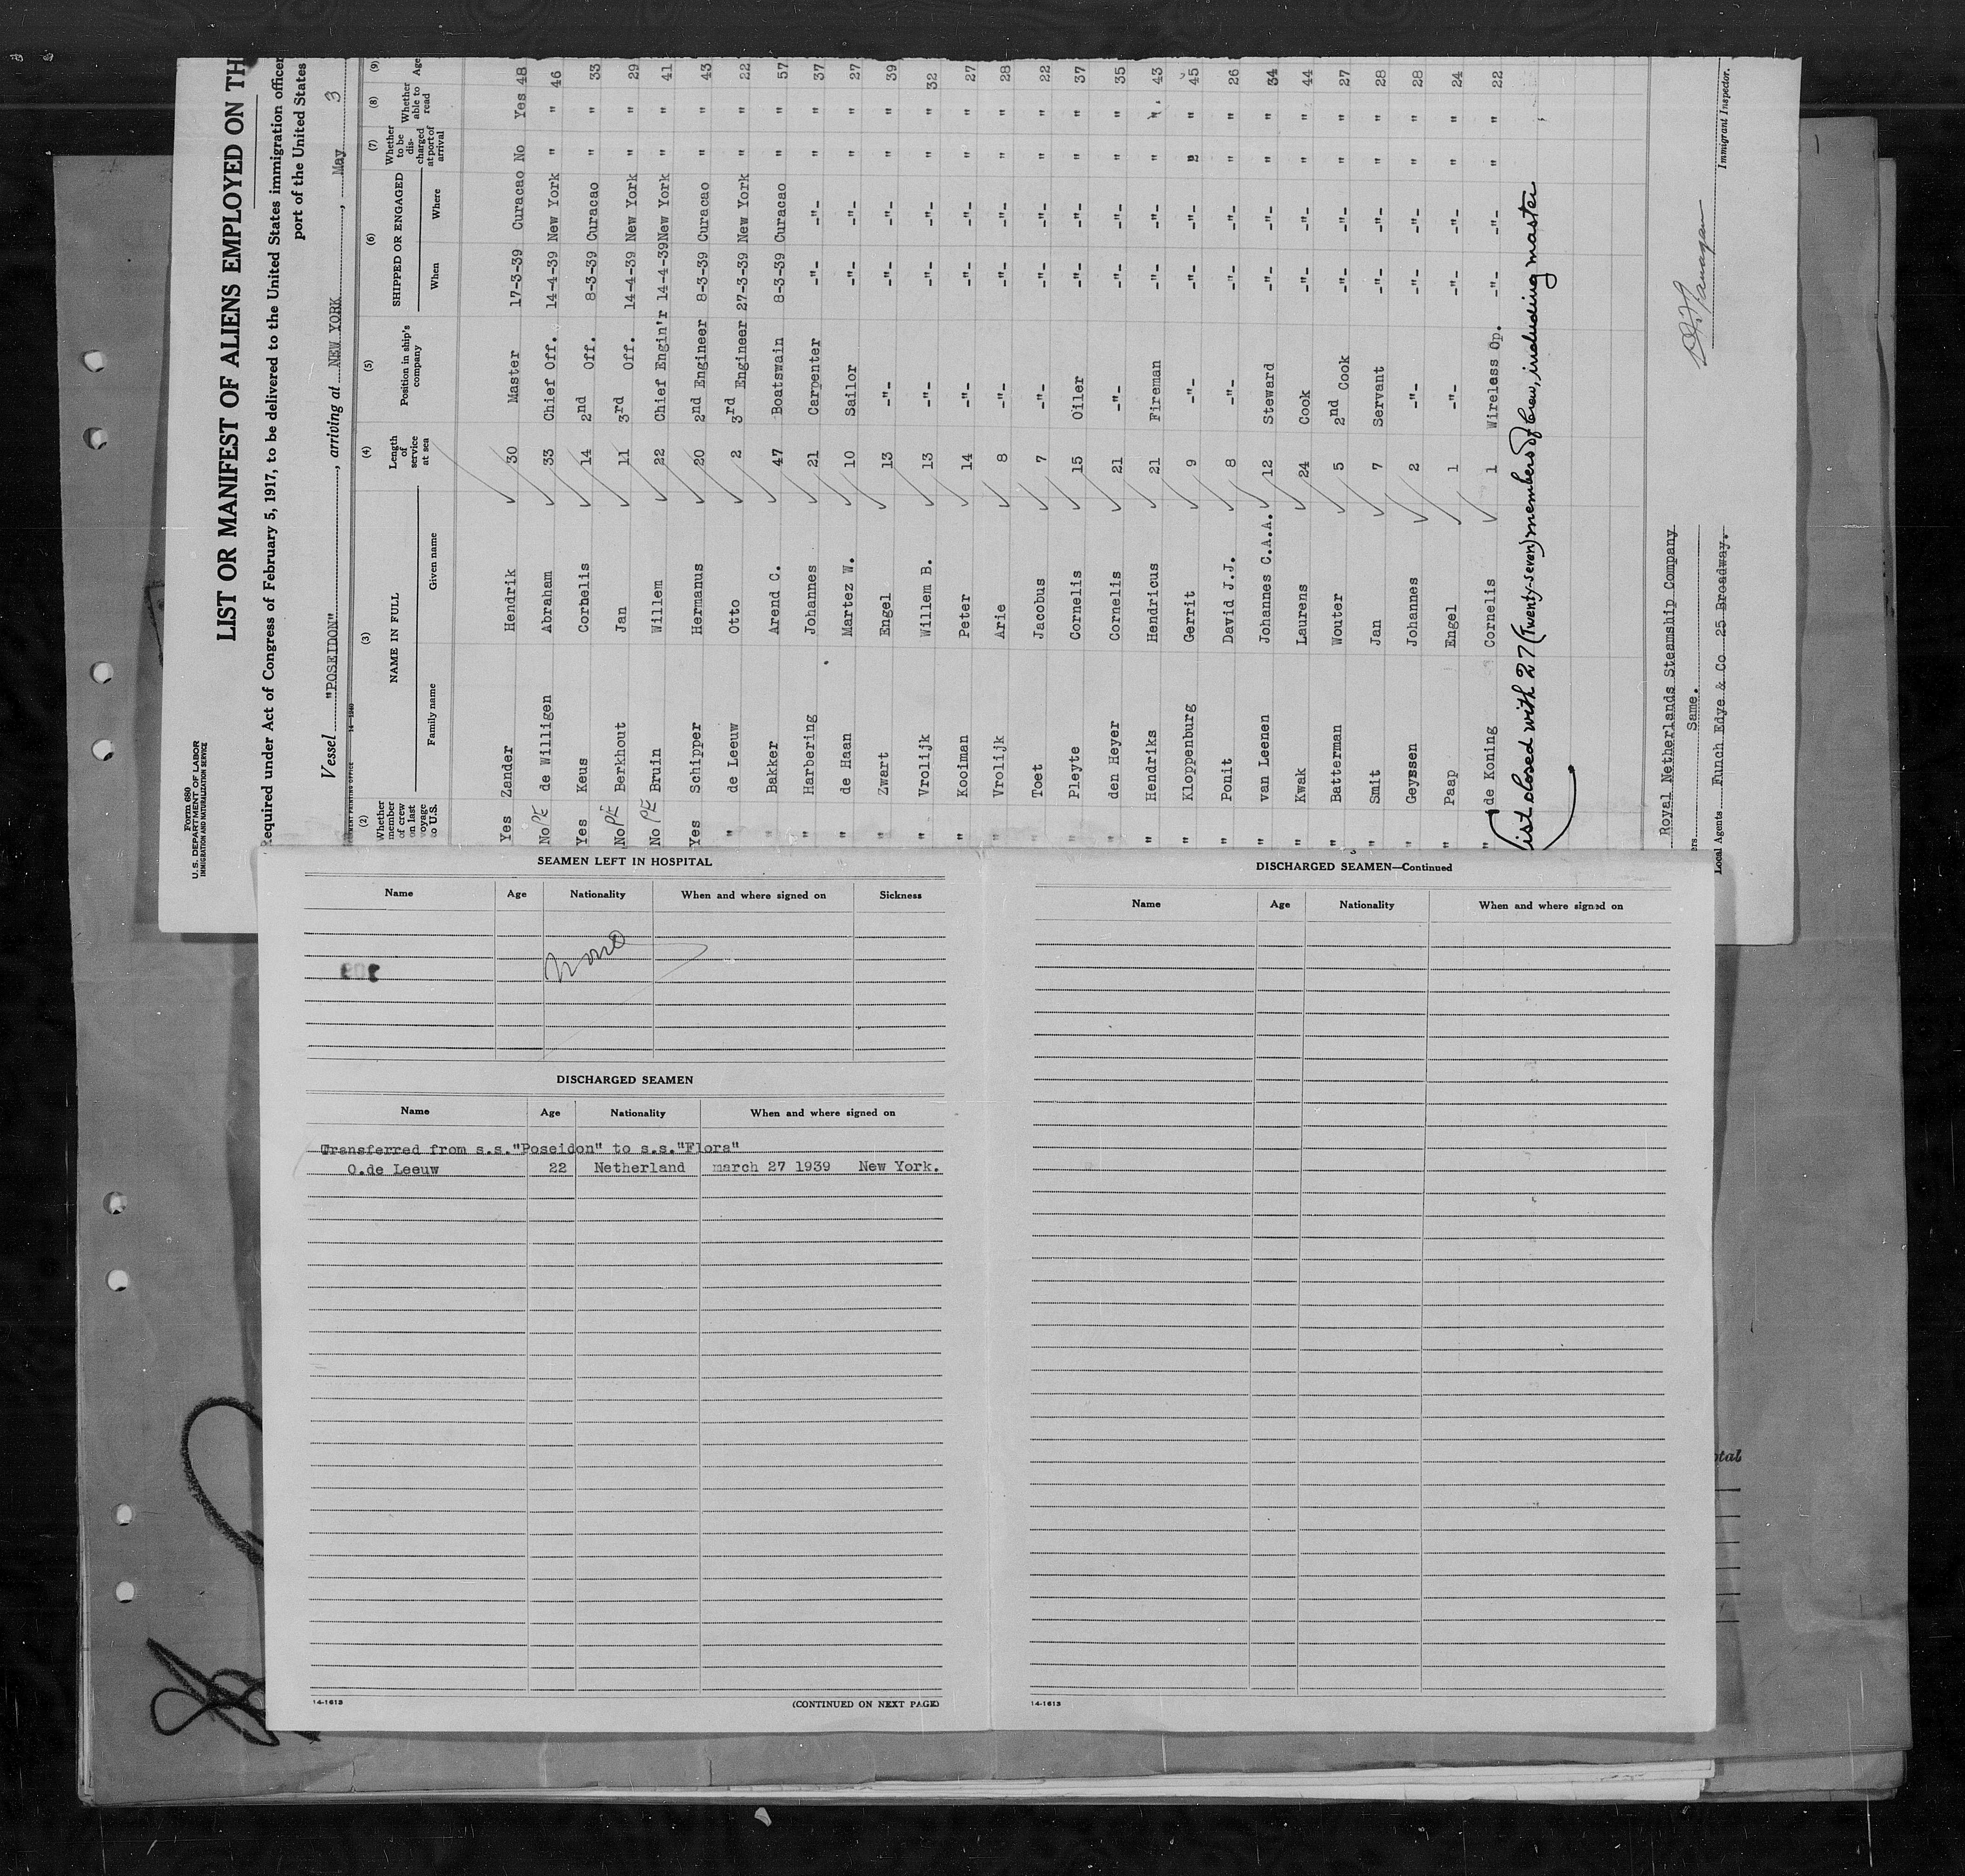 Form 680
U. S. DEPARTMENT OF LABOR
IMMIGRATION AND NATURALIZATION SERVICE
LIST OR MANIFEST OF ALIENS EMPLOYED ON TH
Required under Act of Congress of February 5, 1917, to be delivered to the United States immigration officer
port of the United States
Vessel "POSEIDON", arriving at NEW YORK, May 3
(2) (3) (4) (5) (6) (7) (8) (9)
Whether member of crew on last voyage to U.S. NAME IN FULL Family name Given name Length of service at sea Position in ship's company SHIPPED OR ENGAGED When Where Whether to be discharged at port of arrival Whether able to read Age
Yes Zander Hendrik 30 Master 17-3-39 Curacao No Yes 48
No PE de Willigen Abraham 33 Chief Off. 14-4-39 New York " " 46
Yes Keus Cornelis 14 2nd Off. 8-3-39 Curacao " " 33
No PE Berkhout Jan 11 3rd Off. 14-4-39 New York " " 29
No PE Bruin Willem 22 Chief Engin'r 14-4-39 New York " " 41
Yes Schipper Hermanus 20 2nd Engineer 8-3-39 Curacao " " 43
" de Leeuw Otto 2 3rd Engineer 27-3-39 New York " " 22
" Bakker Arend C. 47 Boatswain 8-3-39 Curacao " " 57
" Harbering Johannes 21 Carpenter -"- -"- " " 37
" de Haan Martez W. 10 Sailor -"- -"- " " 27
" Zwart Engel 13 -"- -"- -"- " " 39
" Vrolijk Willem B. 13 -"- -"- -"- " " 32
" Kooiman Peter 14 -"- -"- -"- " " 27
" Vrolijk Arie 8 -"- -"- -"- " " 28
" Toet Jacobus 7 -"- -"- -"- " " 22
" Pleyte Cornelis 15 Oiler -"- -"- " " 37
" den Heyer Cornelis 21 -"- -"- -"- " " 35
" Hendriks Hendricus 21 Fireman -"- -"- " " 43
" Kloppenburg Gerrit 9 -"- -"- -"- " " 45
" Ponit David J.J. 8 -"- -"- -"- " " 26
" van Leenen Johannes C.A.A. 12 Steward -"- -"- " " 34
" Kwak Laurens 24 Cook -"- -"- " " 44
" Batterman Wouter 5 2nd Cook -"- -"- " " 27
" Smit Jan 7 Servant -"- -"- " " 28
" Geyssen Johannes 2 -"- -"- -"- " " 28
" Paap Engel 1 -"- -"- -"- " " 24
" de Koning Cornelis 1 Wireless Op. -"- -"- " " 22
List closed with 27 (Twenty-seven) members of Crew, including master
Royal Netherlands Steamship Company
ers Same.
Local Agents Funch Edye & Co 25 Broadway.
Immigrant Inspector.
SEAMEN LEFT IN HOSPITAL
Name Age Nationality When and where signed on Sickness
None
DISCHARGED SEAMEN
Name Age Nationality When and where signed on
Transferred from s.s."Poseidon" to s.s."Flora"
O.de Leeuw 22 Netherland march 27 1939 New York.
14-1613
(CONTINUED ON NEXT PAGE)
DISCHARGED SEAMEN—Continued
Name Age Nationality When and where signed on
14-1613
otal